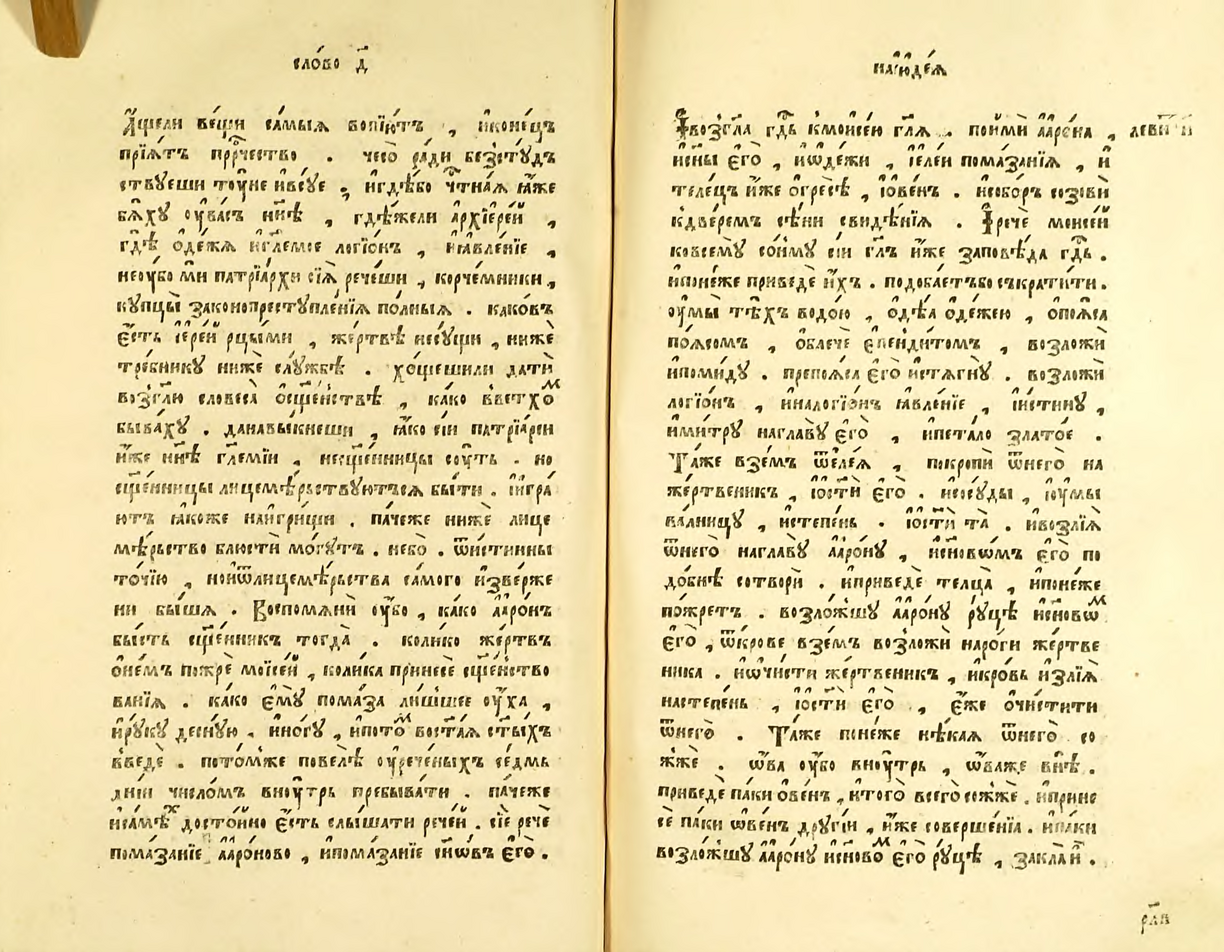 сло́во д҃
А҆́щели ве́щи са́мыѧ вопїю́тъ , и҆коне́цъ
прїѧ́тъ прⷪ҇рчество . чесо̀ ра́ди безстꙋ́дъ
ствꙋеши тоу́не и҆все́е , и҆гдѣ́бо чⷭ҇тнаѧ ꙗ҆́же
бѧ́хꙋ оу҆ва́съ ни҃ѣ , гдѣ́жели а҆рхїере́й ,
гдѣ̀ ѻ҆де́жѧ и҆гл҃емое логїо́нъ , и҆ꙗ҆вле́нїе ,
неоу҆́бо мѝ патрїа́рхи сїѧ̀ рече́ши , корче́мники ,
кꙋпцы̀ законопрестꙋпле́нїѧ по́лныѧ . како́въ
є҆́сть і҆ере́й рцы́ми , же́ртвѣ несꙋ́щи , нижѐ
тре́бникꙋ нижѐ слꙋ́жбѣ . хо́щешили да́ти
возгл҃ю словеса̀ ѻ҆сщ҃е́нствѣ , ка́ко вве́тхоⷨ
быва́хꙋ . данавы́кнеши , ꙗ҆́ко сі́и патрїа́рси
и҆̀же ни҃ѣ гл҃емїи , несщ҃е́нницы сꙋ́ть . но
сщ҃е́нницы лицемѣ́рьствꙋютъсѧ бы́ти . и҆и҆гра́
ютъ ꙗ҆́коже наи҆гри́щи . па́чеже нижѐ лице
мѣ́рьство блюстѝ мо́гꙋтъ . не́бо . ѿи́стинны
то́чїю , нои҆ѿлицемѣ́рьства са́мого и҆зве́рже
ни бы́шѧ . Воспомѧнѝ оу҆́бо , ка́ко а҆арѡ́нъ
бы́сть сщ҃е́нникъ тогда̀ . коли́ко же́ртвъ
ѻ҆не́мъ пожрѐ мѡѷсе́й , коли́ка принесѐ сщ҃е́нство
ва́нїѧ . ка́ко є҆мꙋ̀ пома́за ли́шшее оу҆́ха ,
и҆рꙋ́кꙋ деснꙋ́ю , и҆но́гꙋ , и҆пото́ⷨ востаѧ ст҃ы́хъ
введѐ . пото́мже повелѣ̀ оу҆рече́ныхъ се́дмь
дні́и число́мъ внꙋ́трь пребыва́ти . па́чеже
и҆самѣ́ⷯ досто́йно є҆́сть слы́шати рече́й . сїѐ речѐ
пома́занїе а҆аро́ново , и҆пома́занїе сн҃ѡ́въ є҆гѡ̀ .
наї҆ꙋде́ѧ
І҆возгл҃а гдⷭ҇ь кмоисе́ю гл҃ѧ . поимѝ а҆арѡ́на , леві́и и҆
и҆сн҃ы є҆гѡ̀ , и҆ѻ҆де́жи , і҆еле́й пома́занїѧ , и҆
теле́цъ и҆́же ѻ҆гресѣ̀ , і҆ѻ҆ве́нъ . и҆собо́ръ созовѝ
кдве́ремъ сѣ́ни свидѣ́нїѧ . І҆речѐ моисе́й
ковсемꙋ̀ со́нмꙋ сі́и гл҃ъ и҆́же заповѣ́да гдⷭ҇ь .
и҆поне́же приведѐ и҆́хъ . подоба́етъбо съкрати́ти .
оу҆мы̀ тѣ́хъ водо́ю , ѻ҆дѣ́ѧ ѻ҆де́жею , ѻ҆поѧ́са
по́ѧсомъ , ѻ҆блечѐ є҆пендито́мъ , возложѝ
и҆поми́дꙋ . препоѧ́са є҆гѡ̀ и҆стѧ́гнꙋ . возложѝ
логїо́нъ , и҆налогїо́нъ ꙗ҆вле́нїе , і҆и҆́стинꙋ ,
и҆ми́трꙋ наглавꙋ̀ є҆гѡ̀ , и҆пета́ло злато́е .
Та́же взе́мъ ѿе҆ле́ѧ , покропѝ ѿнегѡ̀ на
же́ртвеникъ , і҆ѻ҆стѝ є҆гѡ̀ . и҆сосꙋ́ды , і҆оу҆мы̀
ва́лницꙋ , и҆сте́пень . і҆ѻ҆стѝ та̀ . и҆возлїѧ̀
ѿнегѡ̀ наглавꙋ̀ а҆арѡ́нꙋ , и҆сн҃овѡ́мъ є҆гѡ̀ по
до́бнѣ сотворѝ . и҆приведѐ телца̀ , и҆поне́же
пожре́тъ . возло́жшꙋ а҆арѡ́нꙋ рꙋ́цѣ и҆сн҃овѡ́ⷨ
є҆гѡ̀ , ѿкро́ве взе́мъ возложѝ наро́ги же́ртве
ника . и҆ѡ҆чи́сти же́ртвеникъ , и҆кро́вь и҆злїѧ̀
насте́пень , і҆ѻ҆стѝ є҆гѡ̀ , є҆́же ѻ҆чи́стити
ѿнегѡ̀ . Та́же поне́же нѣ́каѧ ѿнегѡ̀ со
жжѐ . ѡ҆́ва оу҆́бо внꙋ́трь , ѡ҆́важе внѣ̀ .
приведѐ па́ки ѻ҆ве́нъ , и҆того̀ всего̀ сожжѐ . и҆прине
сѐ па́ки ѡ҆ве́нъ дрꙋгі́и , и҆́же соверше́нїѧ . и҆па́ки
возло́жшꙋ а҆арѡ́нꙋ и҆сн҃ово́ⷨ є҆гѡ̀ рꙋ́цѣ , закла̀ и҆̀ .